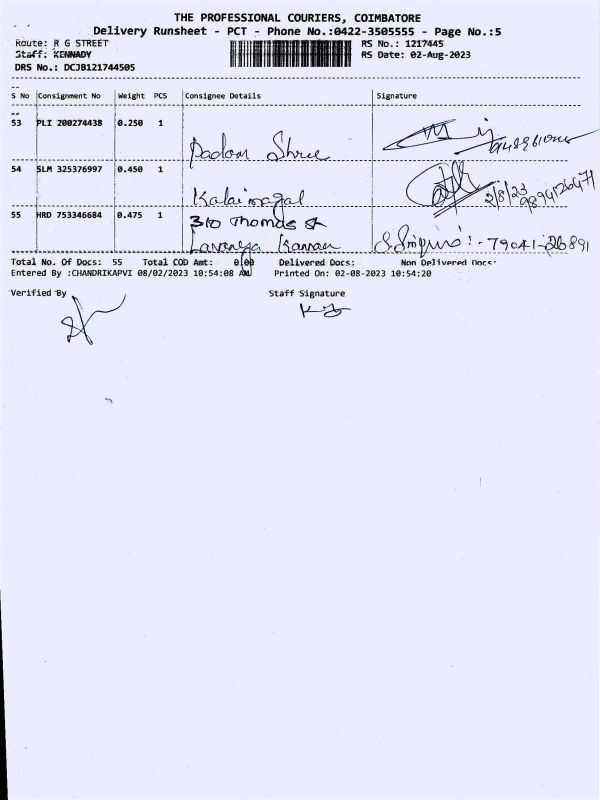 THE PROFESSIONAL COURIERS, COIMBATORE
Delivery Runsheet - PCT - Phone No.:0422-3505555 - Page No.:5
Route: R G STREET RS No.: 1217445
Staff: KENNADY RS Date: 02-Aug-2023
DRS No.: DCJB121744505
S No Consignment No Weight PCS Consignee Details Signature
53 PLI 200274438 0.250 1
Padam Shree
54 SLM 325376997 0.450 1
Kalaimagal 2/8/23
55 HRD 753346684 0.475 1 310 Thomas St
Lavanya Kannan 79041-26891
Total No. Of Docs: 55 Total COD Amt: 0.00 Delivered Docs: Non Delivered Docs:
Entered By :CHANDRIKAPVI 08/02/2023 10:54:08 AM Printed On: 02-08-2023 10:54:20
Verified By Staff Signature